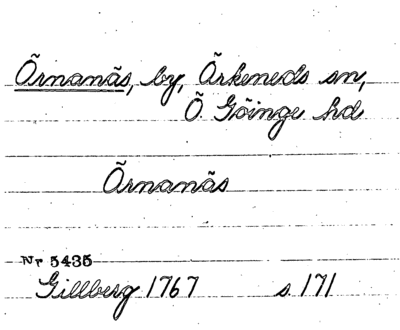 Örnanäs, by, Örkeneds sn,
Ö. Göinge hd
Örnanäs
Nr 5435
Gillberg 1767 s. 171